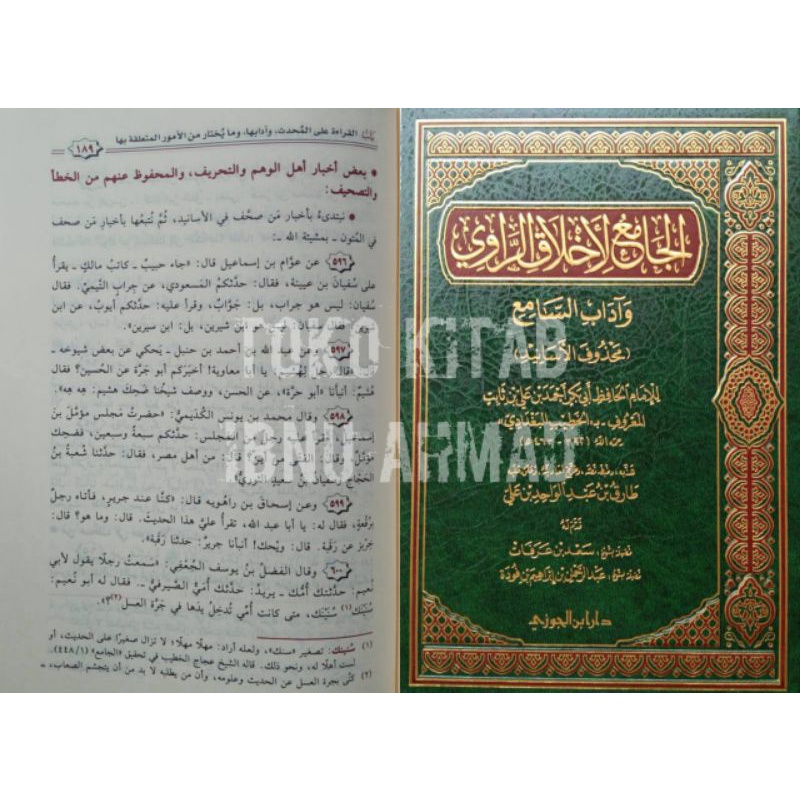 القراءة على المُحدث، وآدابها، وما يُختار من الأمور المتعلقة بها
١٨٩
• بعض أخبار أهل الوهم والتحريف، والمحفوظ عنهم من الخطأ
والتصحيف:
• نبتدىءُ بأخبار مَن صحَّف في الأسانيد، ثُمَّ نُتبعُها بأخبارِ مَن صحف
في المُتون ـ بمشيئة الله ـ:
٥٩٦ عن عوَّام بن إسماعيل قال: «جاء حبيبٌ ـ كاتبُ مالكٍ ـ يقرأُ
على سُفيانَ بن عيينة، فقال: حدَّثكم المَسعودي، عن جرابٍ التَّيميِّ. فقال
سُفيان: ليس هو جراب، بل: جَوَّابٌ، وقرأ عليه: حدَّثكم أيوب، عن ابن
شيرين، فقال سفيان: ليس هو ابن شيرين، بل: ابن سيرين».
٥٩٧ وعن عبد الله بن أحمد بن حنبل ـ يَحكي عن بعض شيوخه ـ
قال: قيل لهُشيم: يا أبا معاوية! أخبَركم أبو جَرَّة عن الحُسين؟ فقال
هُشيمٌ: أنبأنا «أبو حرَّة»، عن الحسن، ووصف شيخُنا ضَحِكَ هشيم: هِه هِه».
٥٩٨ وقال محمد بن يونس الكُديميُّ: «حضرتُ مجلس مؤمَّل بن
إسماعيل، فقرأ عليه رجلٌ من المجلس: حدَّثكم سبعةٌ وسبعين، فضحك
مؤمَّل، وقال للفتى: مِن أين؟ قال: من أهل مصر، فقال: حدَّثنا شعبةُ بنُ
الحجَّاج وسُفيان بن سعيد الثوريُّ».
٥٩٩ وعن إسحاق بن راهويه قال: «كنَّا عند جريرٍ، فأتاه رجلٌ
برُقعةٍ، فقال له: يا أبا عبد الله، تقرأُ عليَّ هذا الحديثَ. قال: وما هو؟ قال:
خربز عن رَقَبة. قال: ويْحك! أنبأنا جريرٌ: حدثنا رَقَبة».
٦٠٠ وقال الفضلُ بنُ يوسف الجُعْفي: «سمعتُ رجلًا يقول لأبي
نُعيم: حدَّثتك أُمُّك ـ يريدُ: حدَّثك أُمَيٌّ الصَّيرفيُّ ـ. فقال له أبو نُعيم:
سُنَيْنَك(١)، متى كانت أُمِّي تُدخِلُ يدَها في جَرَّة العسل(٢)؟».
(١) سُنينك: تصغير «سنك»، ولعله أراد: مهلًا مهلًا؛ لا تزال صغيرًا على الحديث، أو
لست أهلًا له، ونحو ذلك. قاله الشيخ عجاج الخطيب في تحقيق «الجامع» (١/٤٤٨)
(٢) كَنَّى بجرة العسل عن الحديث وعلومه، وأن من يطلبه لا بد من أن يتجشم الصعاب، =
الجامع لأخلاق الراوي
وآداب السامع
(محذوف الأسانيد)
للإمام الحافظ أبي بكر أحمد بن علي بن ثابت
المعروف بـ«الخطيب البغدادي»
طارق بن عبد الواحد بن علي
قدّم له
فضيلة الشيخ: سعد بن عرفات
فضيلة الشيخ: عبد الرحمن بن إبراهيم بن فودة
دار ابن الجوزي
TOKO KITAB
IBNU AHMAD